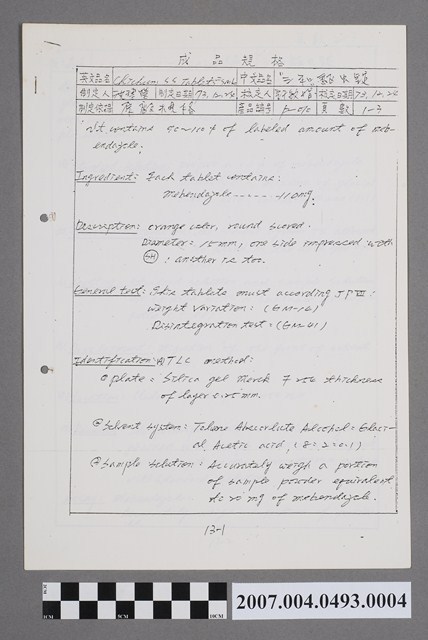 成品規格
英文品名 中文品名
制定人 制定日期 73.12.24 核定人 核定日期 73.12.24
制定依據 產品編號 頁數 1-3
It contains 90~110% of labeled amount of meb-
endazole.
Ingredient: Each tablet contains:
mebendazole------110mg.
Description: orange color, round scored.
Diameter: 10mm, one side impressed with
: another is too.
General test: The tablets must according JP :
weight variation: (GM-16)
Disintegration test: (GM-41)
Identification: TLC method:
plate: Silica gel Merck thickness
of layer 0.25mm.
Solvent system: Absolute Alcohol = Glaci-
al Acetic acid, (8=2=0.1)
Sample solution: Accurately weigh a portion
of sample powder equivalent
to 20mg of mebendazole.
13-1
2007.004.0493.0004